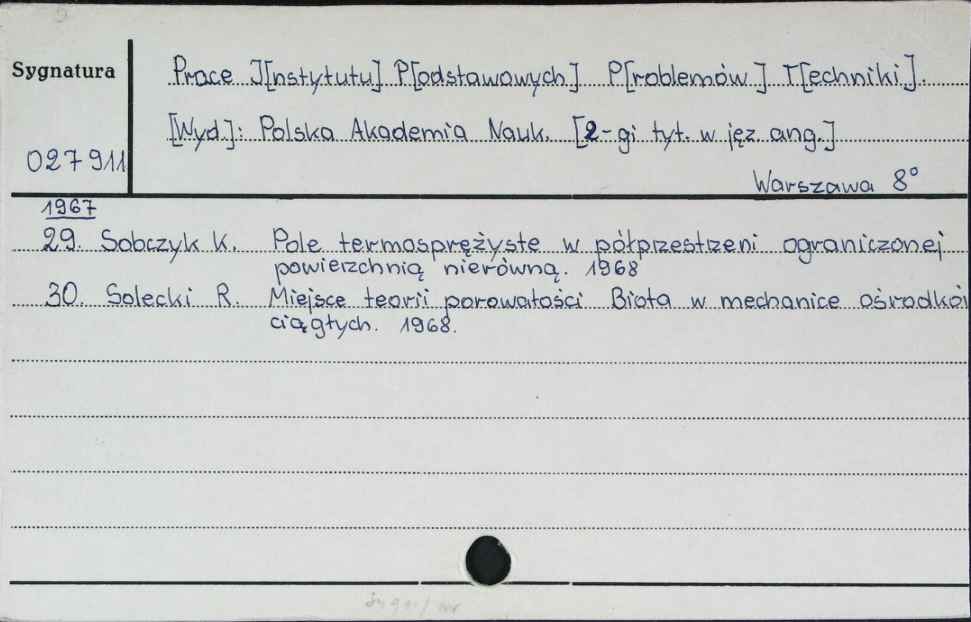 Sygnatura
Prace I[nstytutu] P[odstawowych] P[roblemów] T[echniki].
[Wyd.]: Polska Akademia Nauk. [2-gi tyt. w jęz. ang.]
027911
Warszawa 8°
1967
29. Sobczyk K. Pole termosprężyste w półprzestrzeni ograniczonej
powierzchnią nierówną. 1968
30. Solecki R. Miejsce teorii porowatości Biota w mechanice ośrodków
ciągłych. 1968.